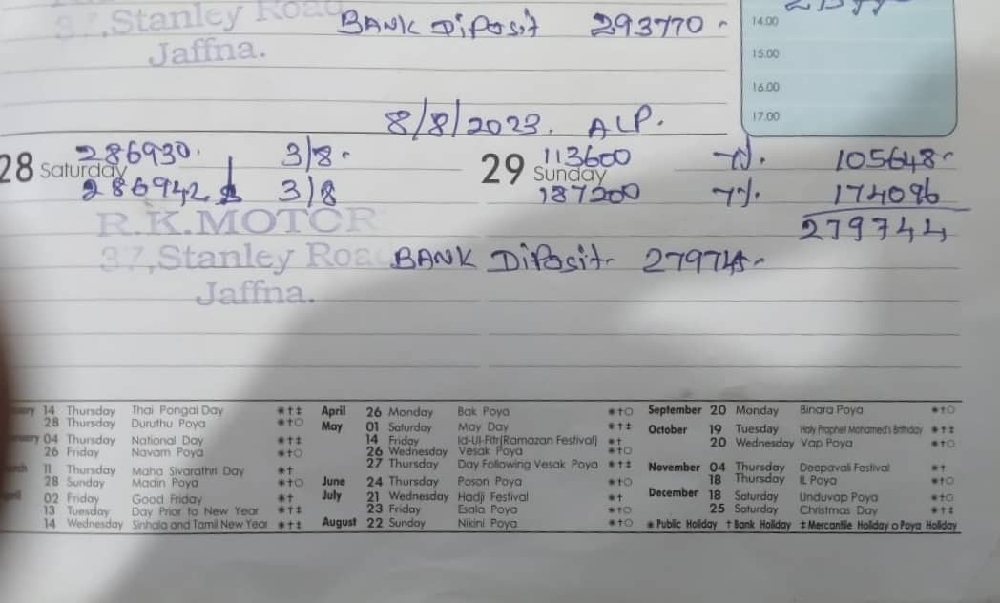 37,Stanley Road BANK DiPosit 293770
14.00
Jaffna.
15.00
16.00
17.00
8/8/2023. ALP.
28 Saturday 286930. 3/8.
286942 3/8
29 Sunday 113600 7%. 105648
187200 7%. 174096
279744
R.K.MOTOR
37,Stanley Road BANK DiPosit 279745
Jaffna.
14 Thursday Thai Pongal Day *†‡
28 Thursday Duruthu Poya *†○
04 Thursday National Day *†‡
26 Friday Navam Poya *†○
11 Thursday Maha Sivarathri Day *†
28 Sunday Madin Poya *†○
02 Friday Good Friday *†
13 Tuesday Day Prior to New Year *†‡
14 Wednesday Sinhala and Tamil New Year *†‡
April 26 Monday Bak Poya *†○
May 01 Saturday May Day *†‡
14 Friday Id-Ul-Fitr(Ramazan Festival) *†
26 Wednesday Vesak Poya *†○
27 Thursday Day Following Vesak Poya *†‡
June 24 Thursday Poson Poya *†○
July 21 Wednesday Hadji Festival *†
23 Friday Esala Poya *†○
August 22 Sunday Nikini Poya *†○
September 20 Monday Binara Poya *†○
October 19 Tuesday Holy Prophet Mohamed's Birthday *†‡
20 Wednesday Vap Poya *†○
November 04 Thursday Deepavali Festival *†
18 Thursday IL Poya *†○
December 18 Saturday Unduvap Poya *†○
25 Saturday Christmas Day *†‡
*Public Holiday †Bank Holiday ‡Mercantile Holiday ○Poya Holiday